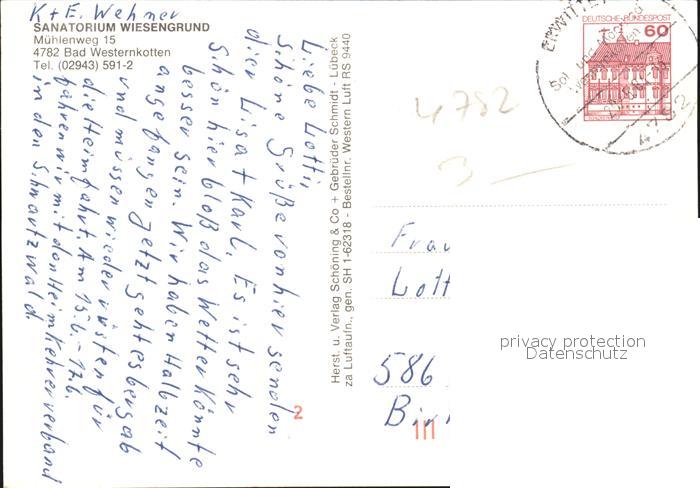 K + E. Wehner
SANATORIUM WIESENGRUND
Mühlenweg 15
4782 Bad Westernkotten
Tel. (02943) 591-2
Liebe Lotti,
schöne Grüße von hier senden
dier Lisa + Karl. Es ist sehr
schön hier bloß das Wetter könnte
besser sein. Wir haben Halbzeit
angefangen jetzt geht es bergab
und müssen wieder rüsten für
die Heimfahrt. Am 15.6.-17.6.
fahren wir mit den Heimkehrerverband
in den Schwartzwald.
Herst. u. Verlag Schöning & Co + Gebrüder Schmidt - Lübeck
za Luftaufn., gen. SH 1-62318 - Bestellnr. Western Luft RS 9440
2
4782
3
DEUTSCHE BUNDESPOST
60
ERWITTE
4782
Frau
Lott
586
Bir
III
privacy protection
Datenschutz